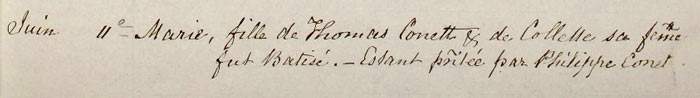 Juin 11e Marie, fille de Thomas Conett & de Collette sa feme
fut Batisé. - Estant pntée par Philippe Conet.